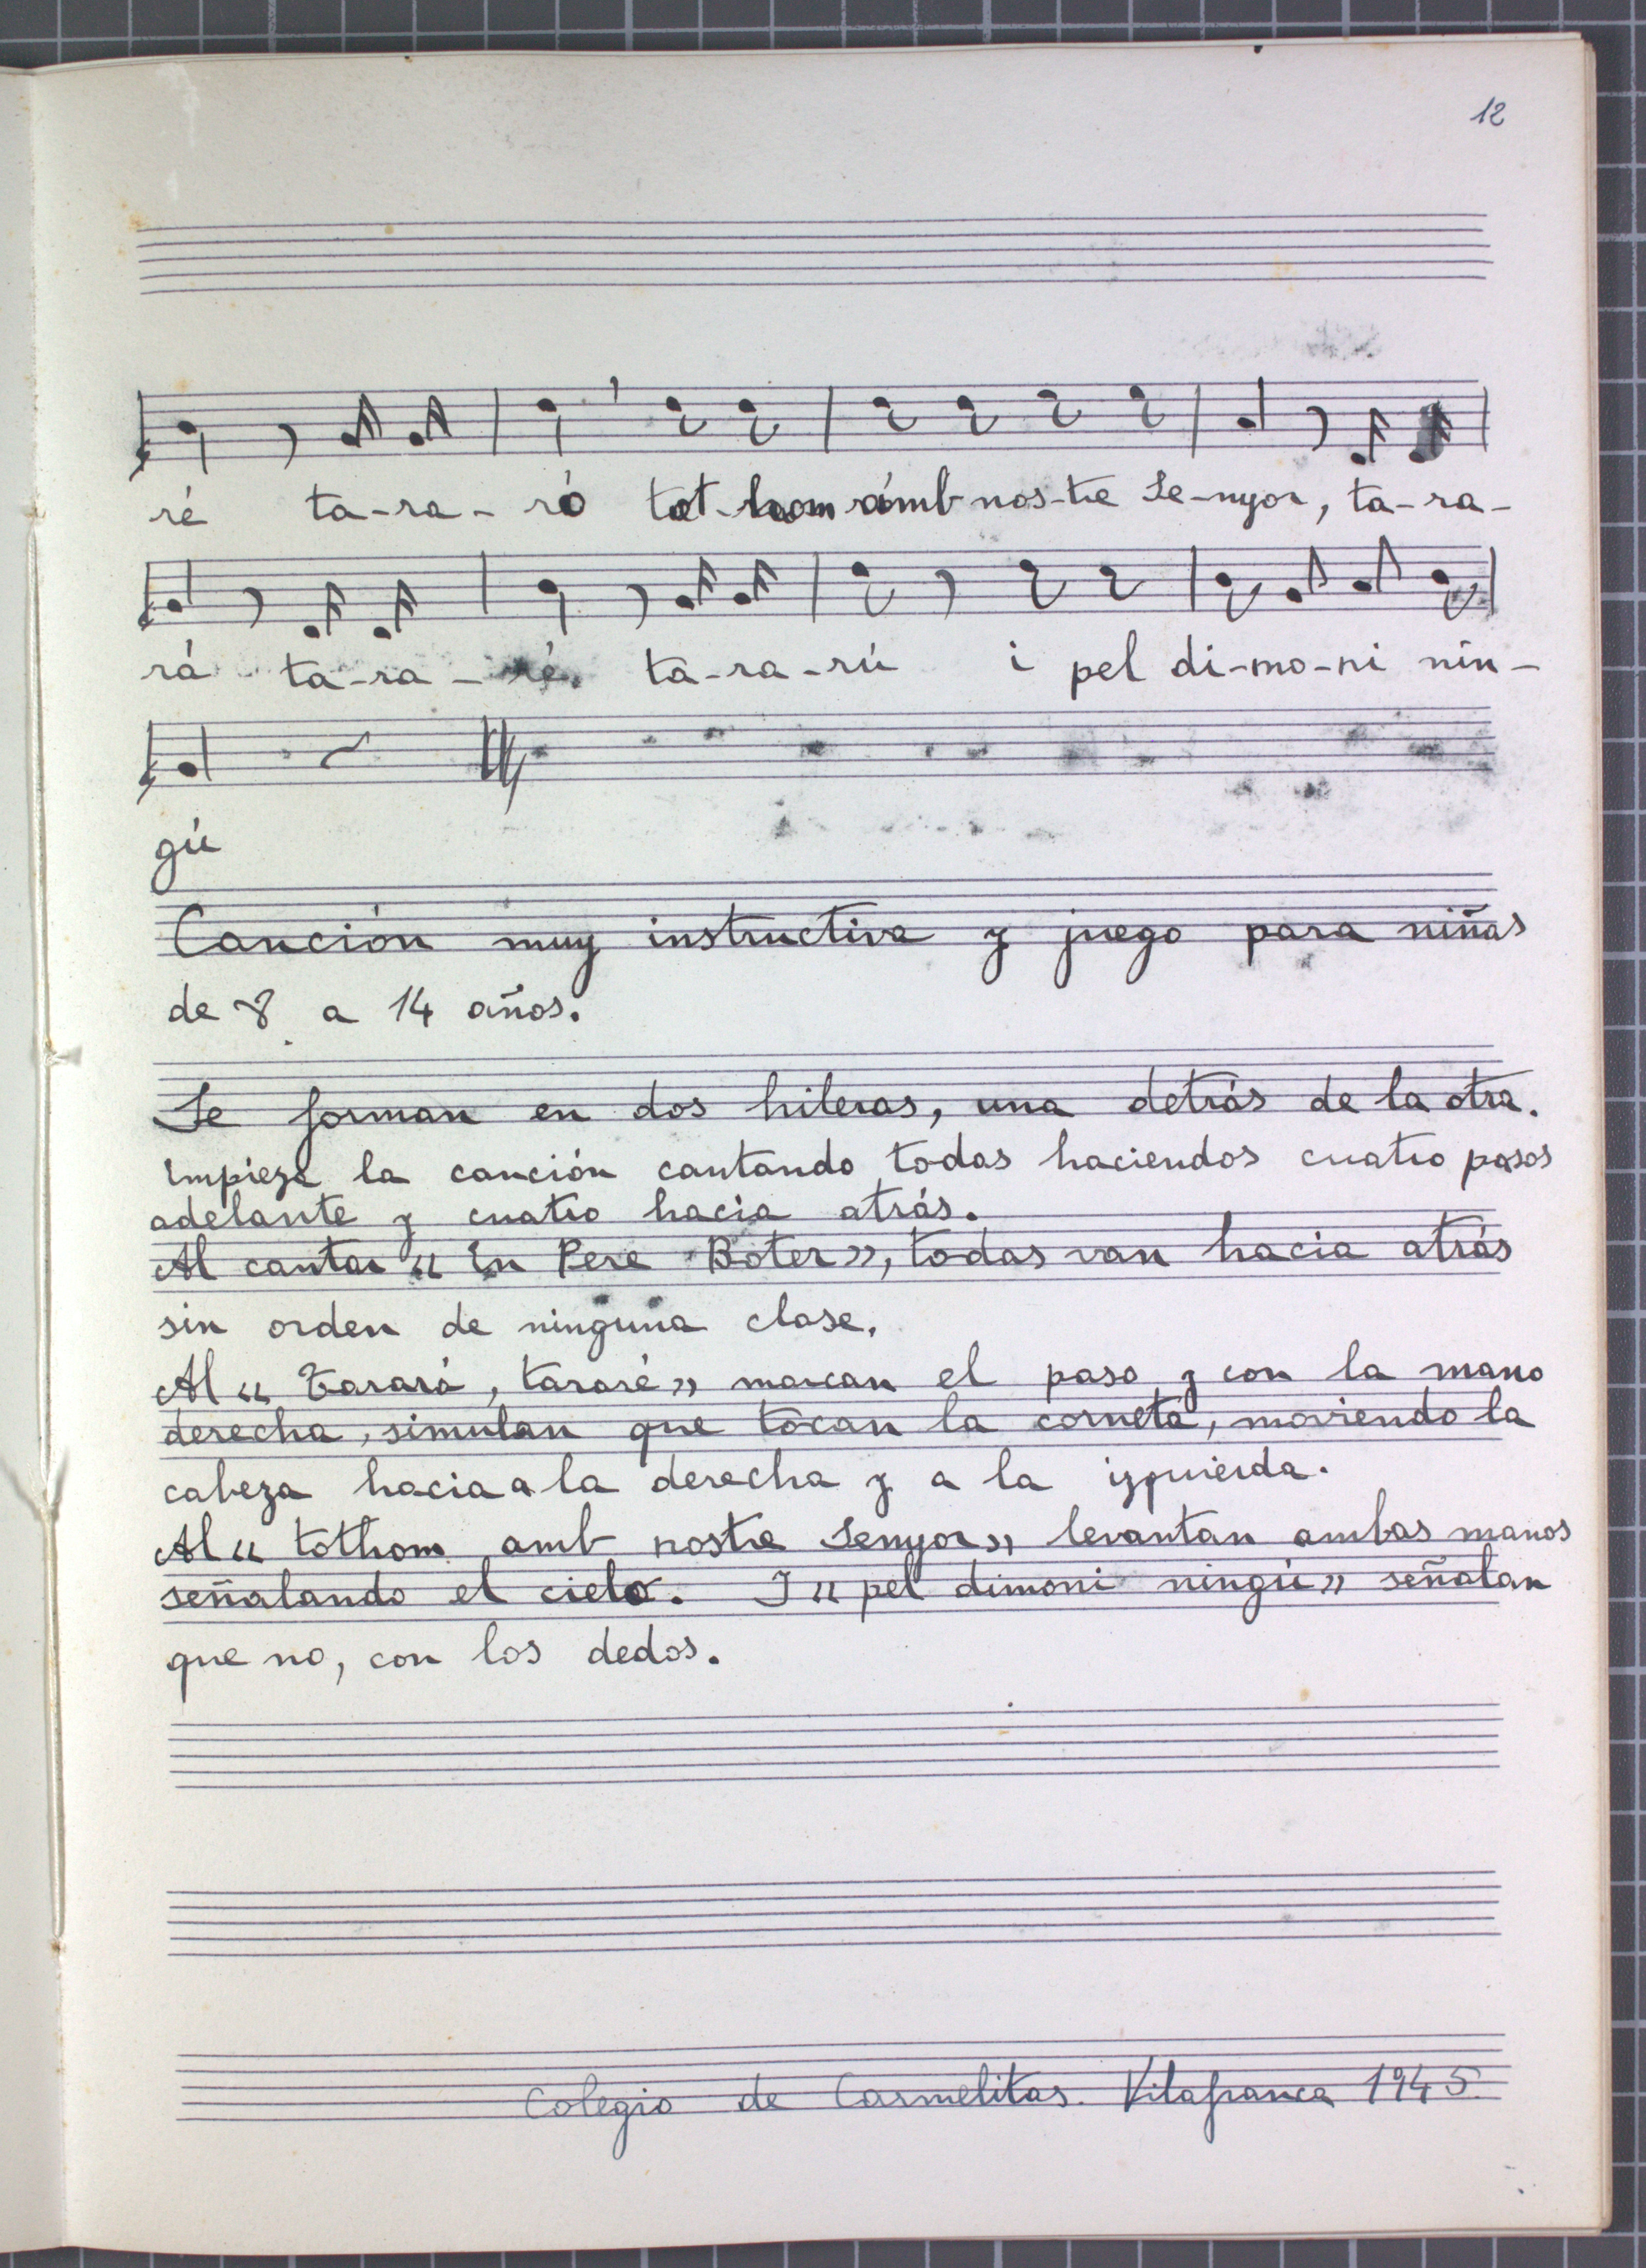 12
ré ta-ra- ró tot-hom amb nos-tre Se-nyor, ta-ra-
rá ta-ra- ré. ta-ra-rú i pel di-mo-ni nin-
gú
Canción muy instructiva y juego para niñas
de 8 a 14 años.
Se forman en dos hileras, una detrás de la otra.
Empieza la canción cantando todas haciendos cuatro pasos
adelante y cuatro hacia atrás.
Al cantar « En Pere Boter», todas van hacia atrás
sin orden de ninguna clase.
Al « Tarará, tararé» marcan el paso y con la mano
derecha, simulan que tocan la corneta, moviendo la
cabeza hacia a la derecha y a la izquierda.
Al « tothom amb nostre Senyor» levantan ambas manos
señalando el cielo. I « pel dimoni ningú» señalan
que no, con los dedos.
Colegio de Carmelitas. Vilafranca 1945.